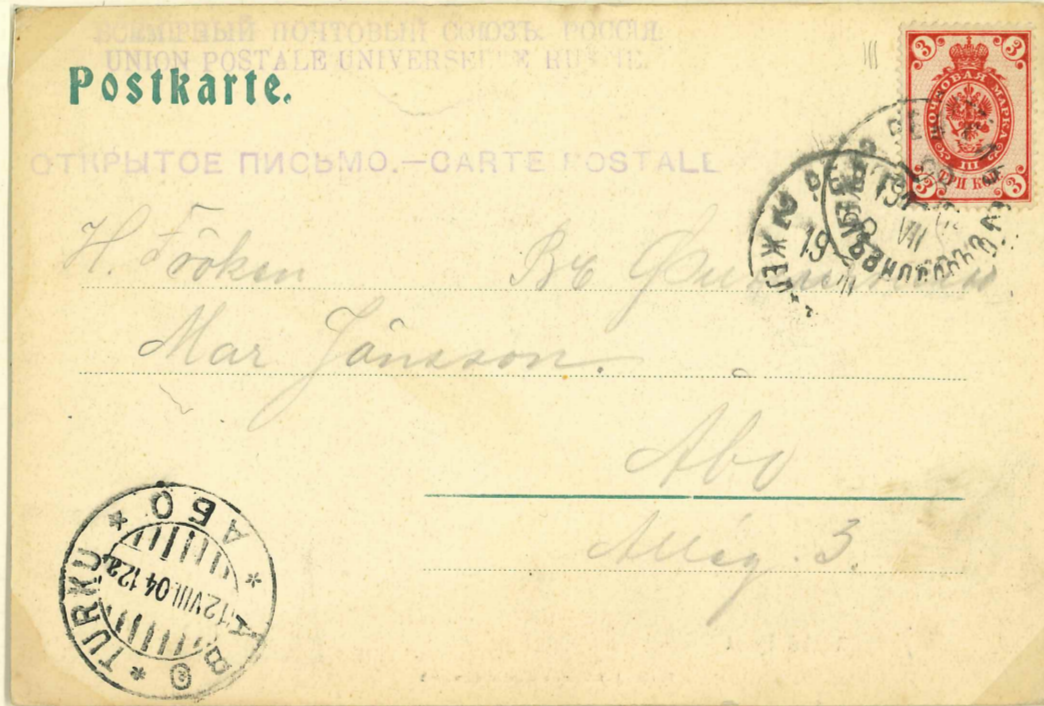 ВСЕМІРНЫЙ ПОЧТОВЫЙ СОЮЗЪ. РОССІЯ.
UNION POSTALE UNIVERSELLE RUSSIE.
Postkarte.
ОТКРЫТОЕ ПИСЬМО.—CARTE POSTALE
3 3
ПОЧТОВАЯ МАРКА
III
ТРИ КОП.
3 3
H. Fröken
Въ
Mar Jansson.
Abo
Alleg. 3.
АБО
TURKU
12.VIII.04 12a.
ÅBO